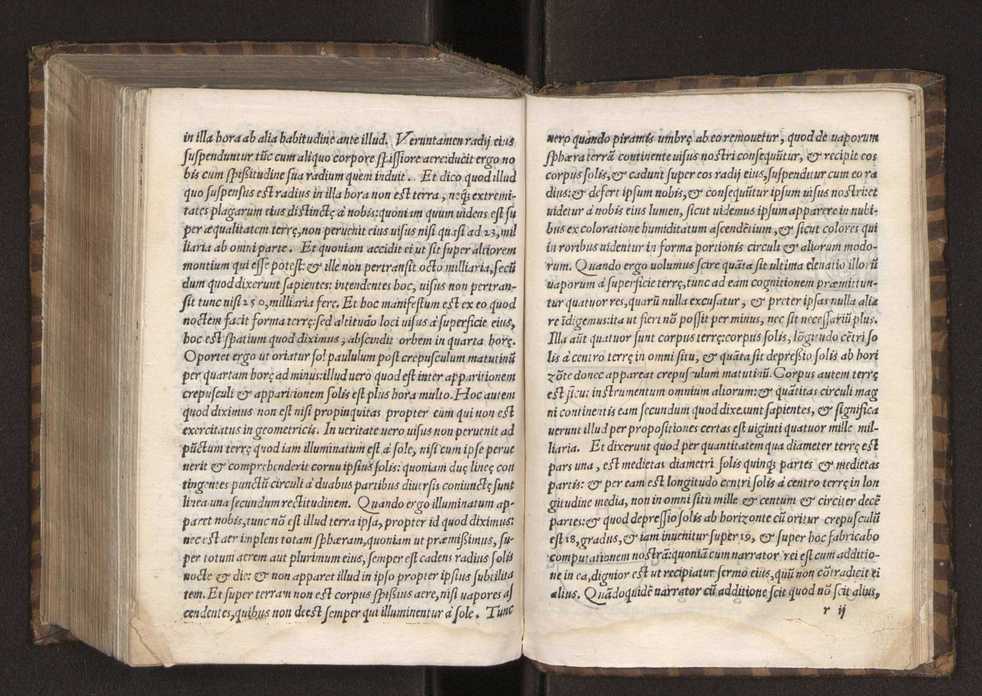 in illa hora ab alia habitudine ante illud. Veruntamen radij eius
suspenduntur tũc cum aliquo corpore spissiore aere: ducit ergo no
bis cum spissitudine sua radium quem induit. Et dico quod illud
quo suspensus est radius in illa hora non est terra, neqȝ extremi-
tates plagarum eius distinctę à nobis: quoniam quum uidens est su
per æqualitatem terrę, non peruenit eius uisus nisi quasi ad 23, mil
liaria ab omni parte. Et quoniam accidit ei ut sit super altiorem
montium qui esse potest: & ille non pertransit octo milliaria, secũ
dum quod dixerunt sapientes: intendentes hoc, uisus non pertran-
sit tunc nisi 250, milliaria fere. Et hoc manifestum est ex eo quod
noctem facit forma terrę: sed altitudo loci uisus à superficie eius,
hoc est spatium quod diximus, abscndit orbem in quarta horę.
Oportet ergo ut oriatur sol paulum post crepusculum matutinũ
per quartam horę ad minus: illud uero quod est inter apparitionem
crepusculi & apparitionem solis est plus hora multo. Hoc autem
quod diximus non est nisi propinquitas propter eum qui non est
exercitatus in geometricis. In ueritate uero uisus non peruenit ad
pũctum terrę quod iam illuminatum est à sole, nisi cum ipse perue
nerit & comprehenderit cornu ipsius solis: quoniam duę lineę con
tingentes punctũ circuli à duabus partibus diuersis coniunctę sunt
linea una secundum rectitudinem. Quando ergo illuminatum ap-
paret nobis, tunc nõ est illud terra ipsa, propter id quod diximus:
nec est aer implens totam sphæram, quoniam ut præmisimus, su-
per totum aerem aut plurimum eius, semper est cadens radius solis
nocte & die: & non apparet illud in ipso propter ipsius subtilita
tem. Et super terram non est corpus spissius aere, nisi uapores as
cendentes, quibus non deest semper qui illuminentur à sole. Tunc
uero quando piramis umbrę ab eo remouetur, quod de uaporum
sphæra terrã continente uisus nostri consequũtur, & recipit eos
corpus solis, & cadunt super eos radij eius, suspenditur cum eo ra
dius: & defert ipsum nobis, & consequũtur ipsum uisus nostri: et
uidetur à nobis eius lumen, sicut uidemus ipsum apparere in nubi-
bus ex coloratione humiditatum ascendẽtium, & sicut colores qui
in roribus uidentur in forma portionis circuli & aliorum modo-
rum. Quando ergo uolumus scire quãta sit ultima eleuatio illorũ
uaporum à superficie terrę, tunc ad eam cognitionem præmittun-
tur quatuor res, quarũ nulla excusatur, & preter ipsas nulla alia
re ĩdigemus: ita ut fieri nõ possit per minus, nec sit necessariũ plus.
Illa aũt quatuor sunt corpus terrę: corpus solis, lõgitudo cẽtri so
lis à centro terrę in omni situ, & quãta sit depressio solis ab hori
zõte donec appareat crepusculum matutinũ. Corpus autem terrę
est sicut instrumentum omnium aliorum: & quãtitas circuli mag
ni continentis eam secundum quod dixerunt sapientes, & significa
uerunt illud per propositiones certas est uiginti quatuor mille mil-
liaria. Et dixerunt quod per quantitatem qua diameter terrę est
pars una, est medietas diametri solis quinqȝ partes & medietas
partis: & per eam est longitudo centri solis à centro terrę in lon
gitudine media, non in omni situ mille & centum & circiter decẽ
partes: & quod depressio solis ab horizonte cũ oritur crepusculũ
est 18, gradus, & iam inuenitur super 19, & super hoc fabricabo
computationem nostrã: quoniã cum narrator rei est cum additio-
ne in ea, dignior est ut recipiatur sermo eius, quũ non cõtradicit ei
alius. Quãdoquidẽ narrator cũ additione scit quod nõ scit alius,
r ij